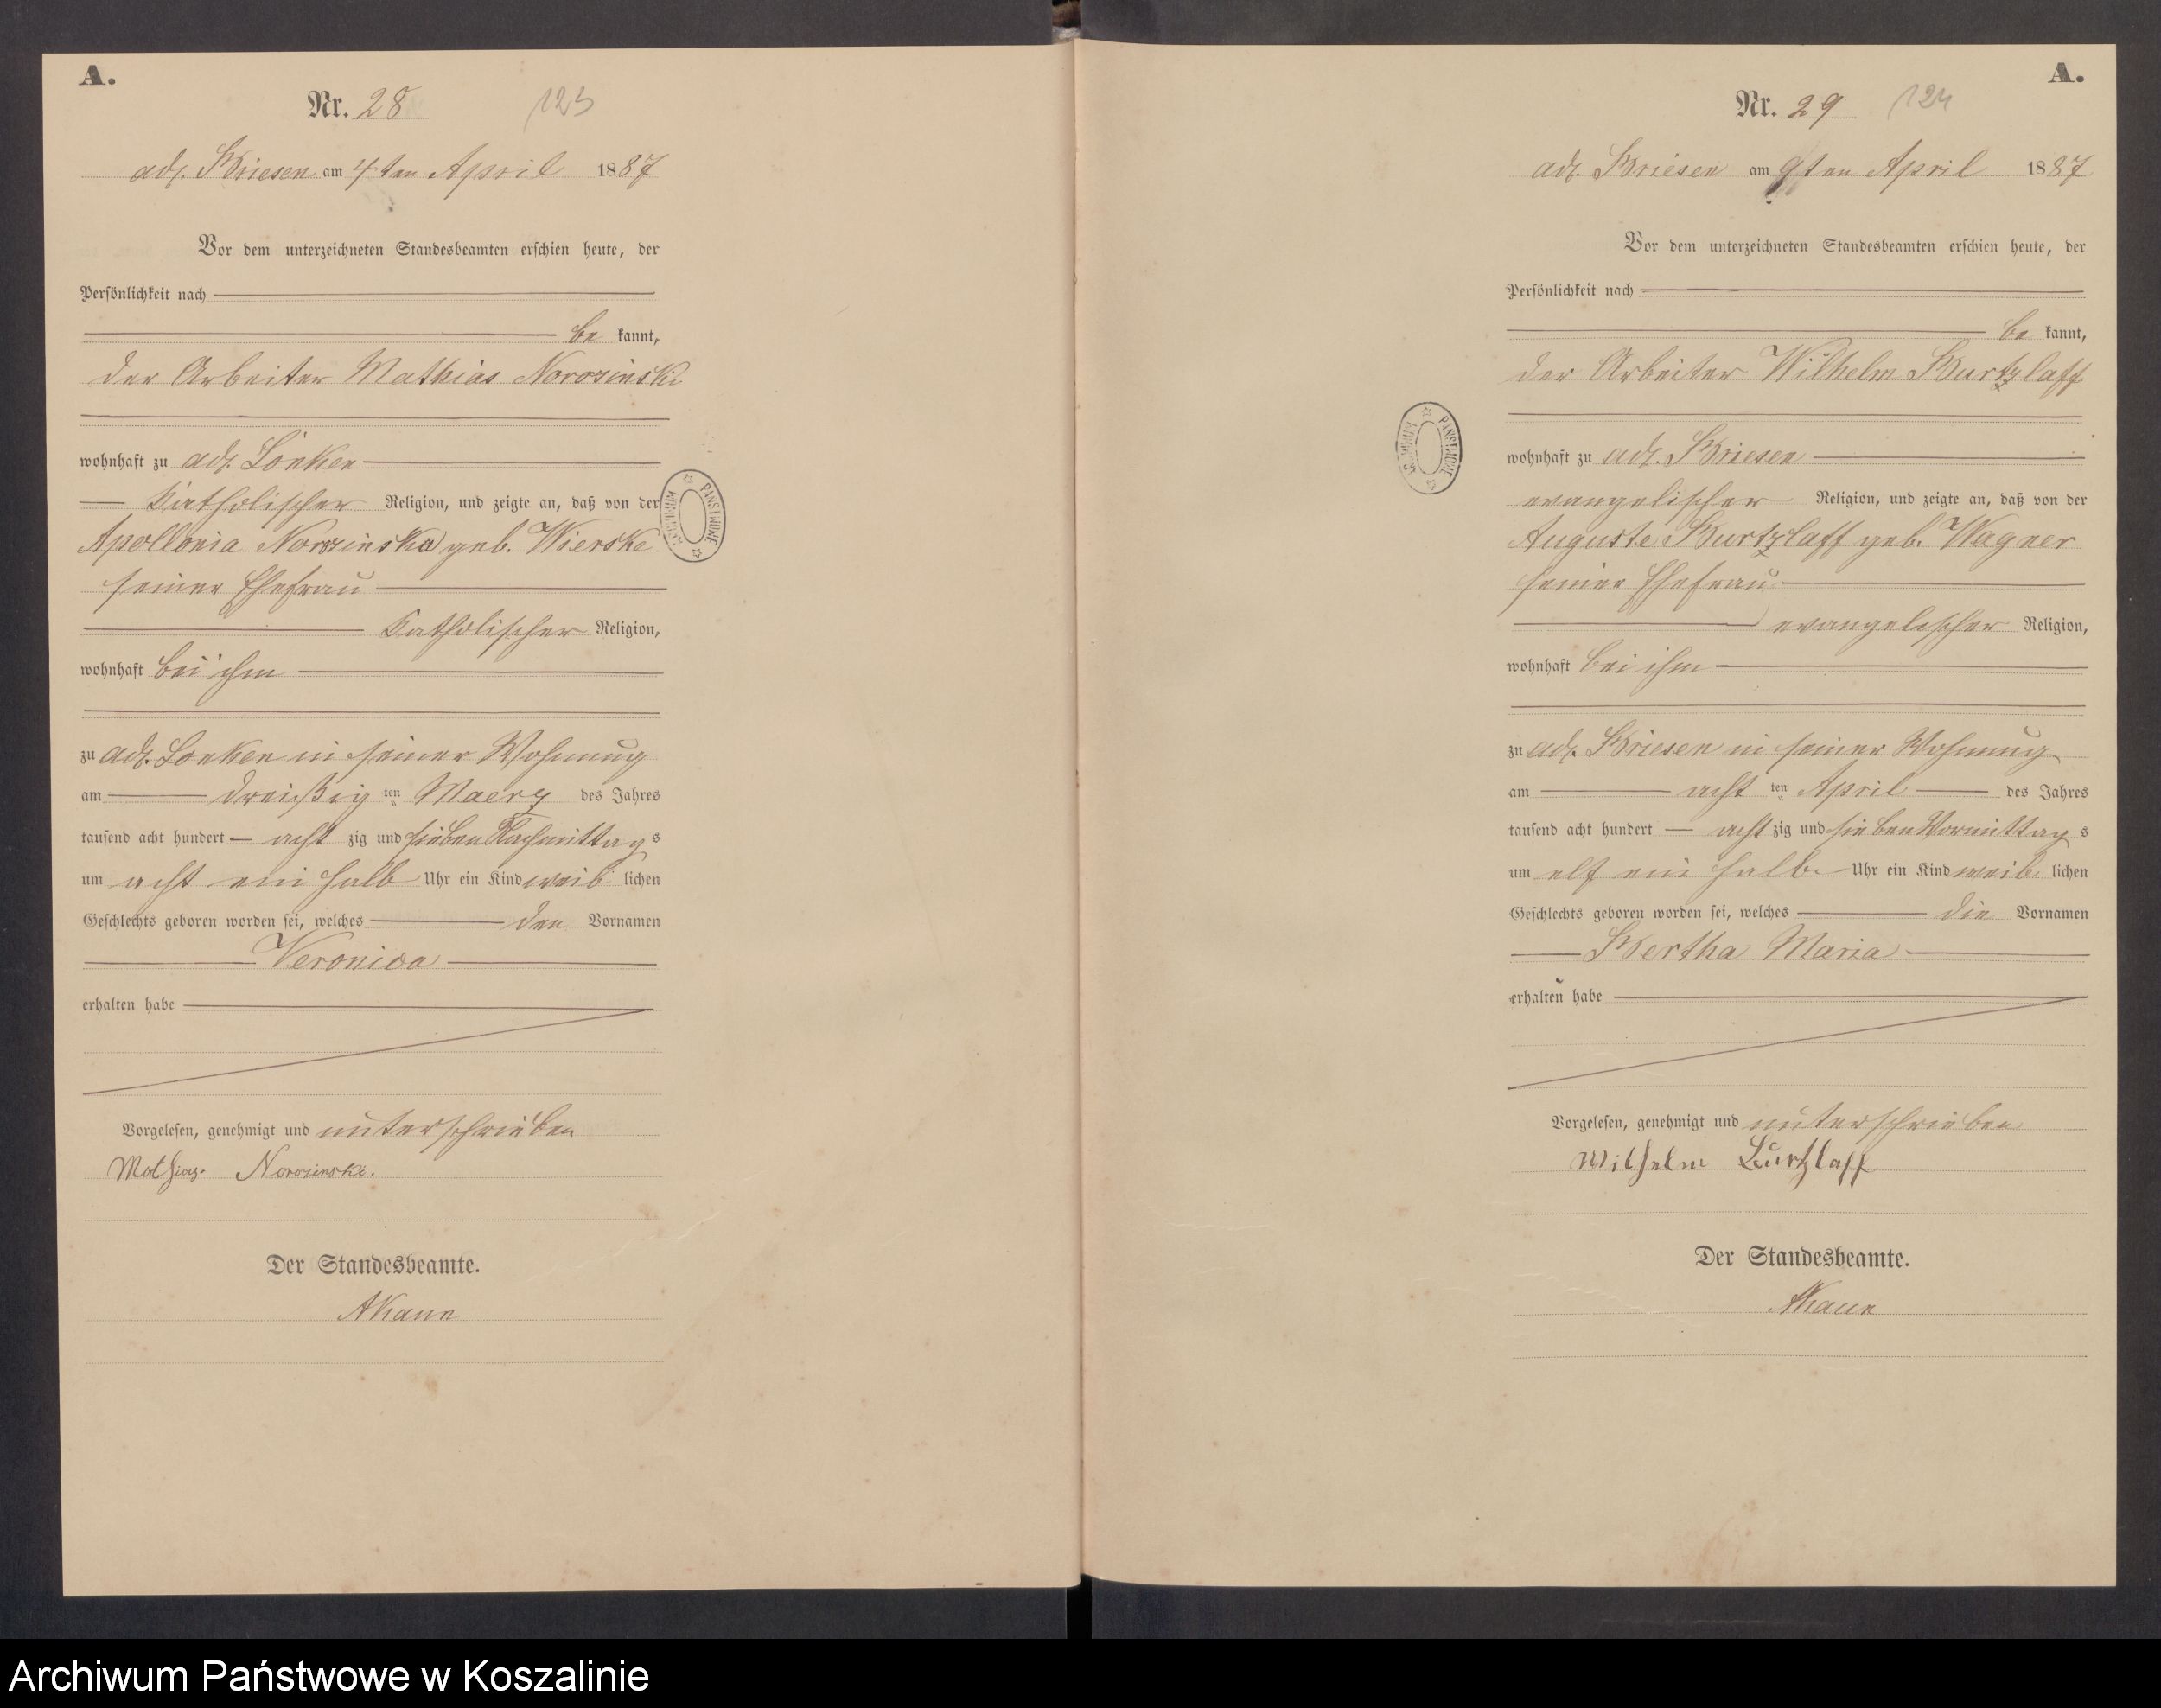 A.
Nr. 28
123
adl. Briesen am 4ten April 1887
Vor dem unterzeichneten Standesbeamten erschien heute, der
Persönlichkeit nach
be kannt,
der Arbeiter Mathias Norosinski
wohnhaft zu adl. Lonken
Katholischer Religion, und zeigte an, daß von der
Apollonia Norosinska geb. Wierske
seiner Ehefrau
Katholischer Religion,
wohnhaft bei ihm
zu adl. Lonken in seiner Wohnung
am dreißig ten Maerz des Jahres
tausend acht hundert acht zig und sieben Nachmittag s
um acht ein halb Uhr ein Kind weib lichen
Geschlechts geboren worden sei, welches den Vornamen
Veronica
erhalten habe
Vorgelesen, genehmigt und unterschrieben
Mathias Norosinski.
Der Standesbeamte.
AKaun
A.
Nr. 29
124
adl. Briesen am 9ten April 1887
Vor dem unterzeichneten Standesbeamten erschien heute, der
Persönlichkeit nach
be kannt,
der Arbeiter Wilhelm Burtzlaff
wohnhaft zu adl. Briesen
evangelischer Religion, und zeigte an, daß von der
Auguste Burtzlaff geb. Wagner
seiner Ehefrau
evangelischer Religion,
wohnhaft bei ihm
zu adl. Briesen in seiner Wohnung
am acht ten April des Jahres
tausend acht hundert acht zig und sieben Vormittag s
um elf ein halb Uhr ein Kind weib lichen
Geschlechts geboren worden sei, welches die Vornamen
Bertha Maria
erhalten habe
Vorgelesen, genehmigt und unterschrieben
Wilhelm Burtzlaff
Der Standesbeamte.
AKaun
ARCHIWUM PAŃSTWOWE
ARCHIWUM PAŃSTWOWE
Archiwum Państwowe w Koszalinie